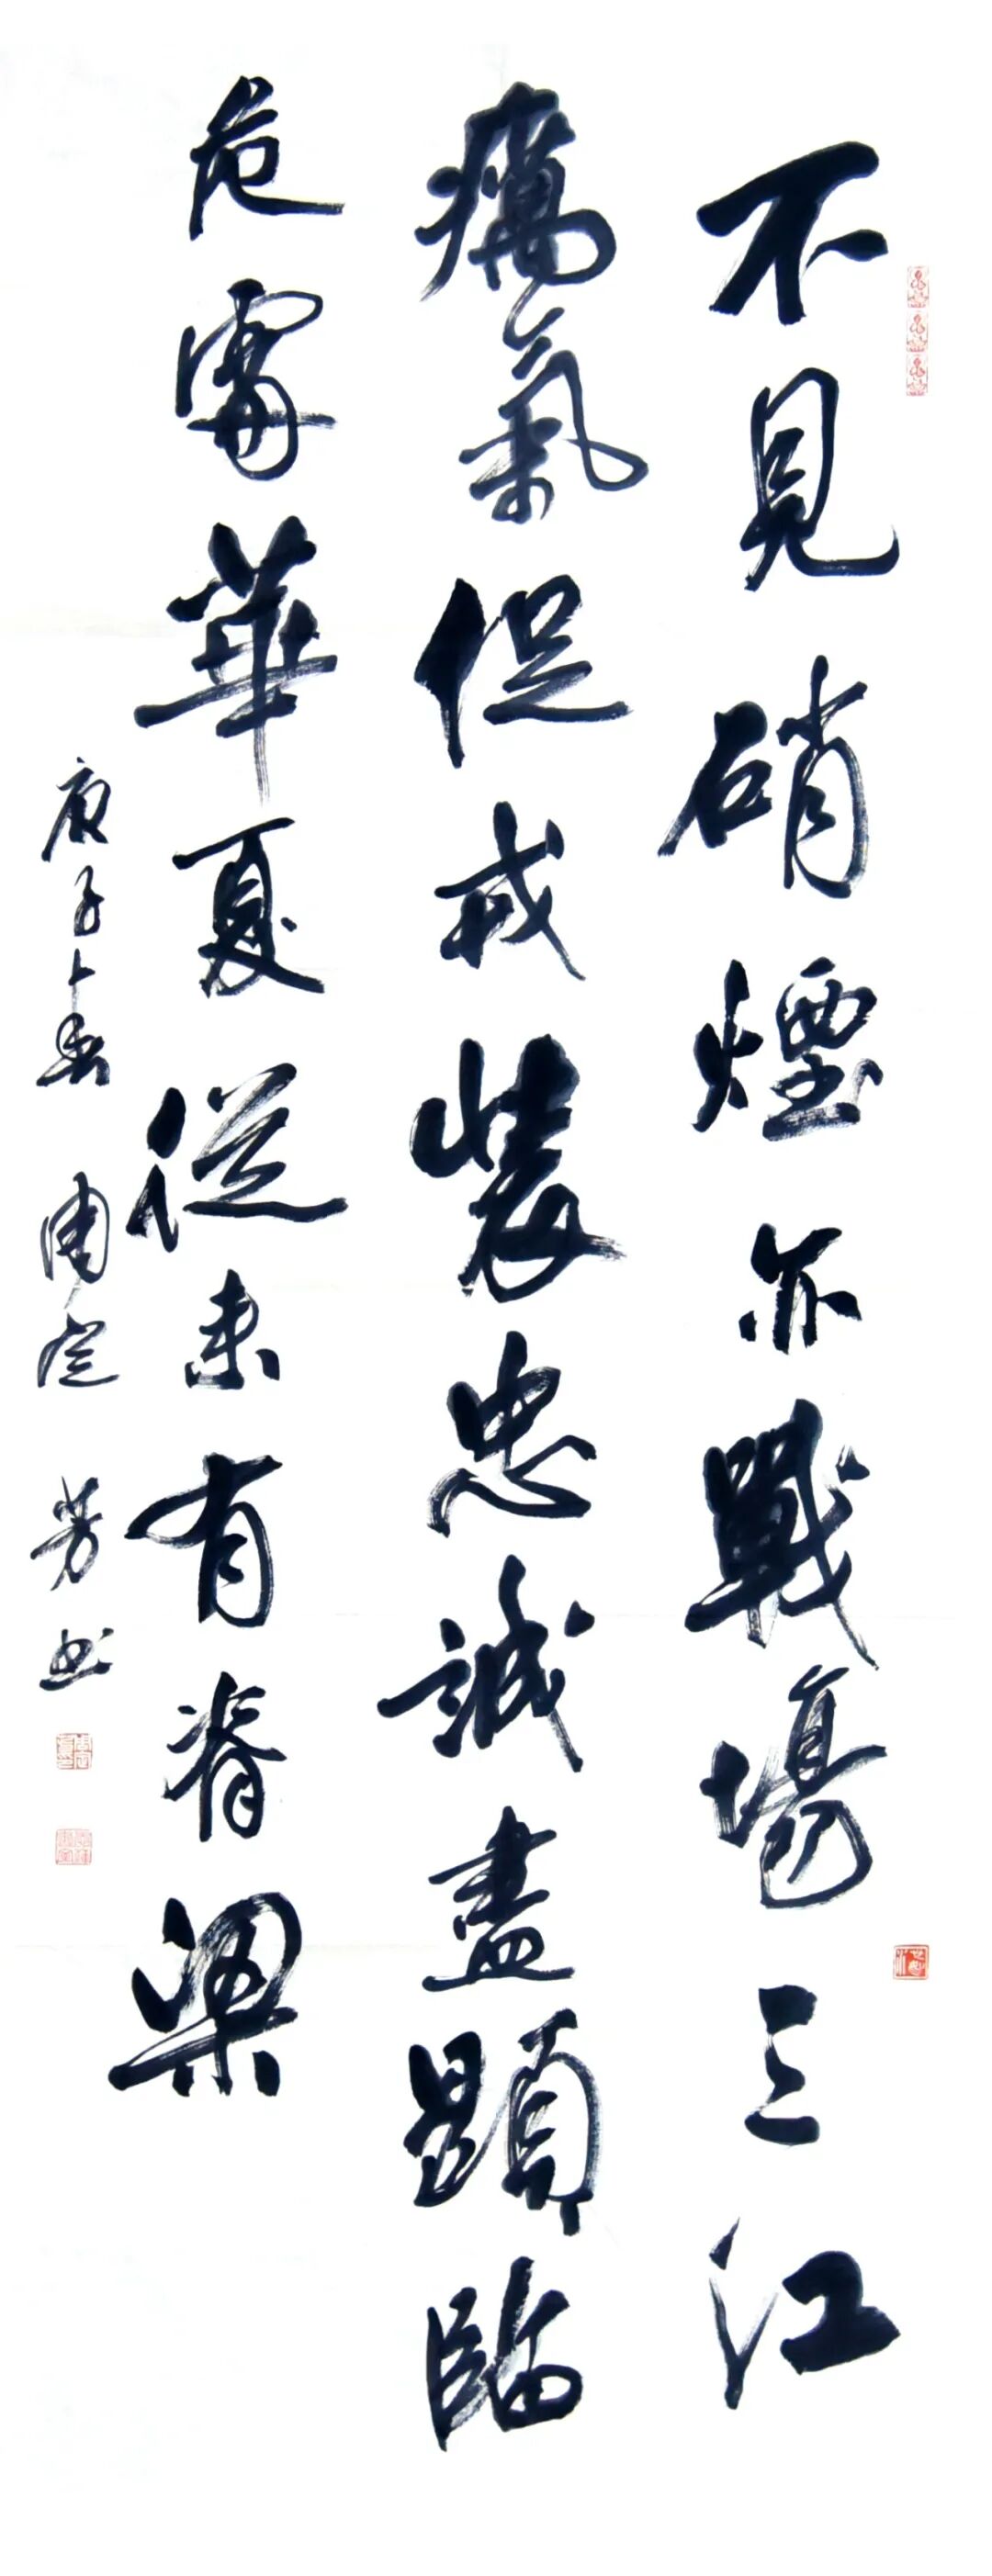 不見硝煙亦戰場三江
癘氣促戎裝忠誠盡顯臨
危處華夏從来有脊梁
庚子上春 周定芳书